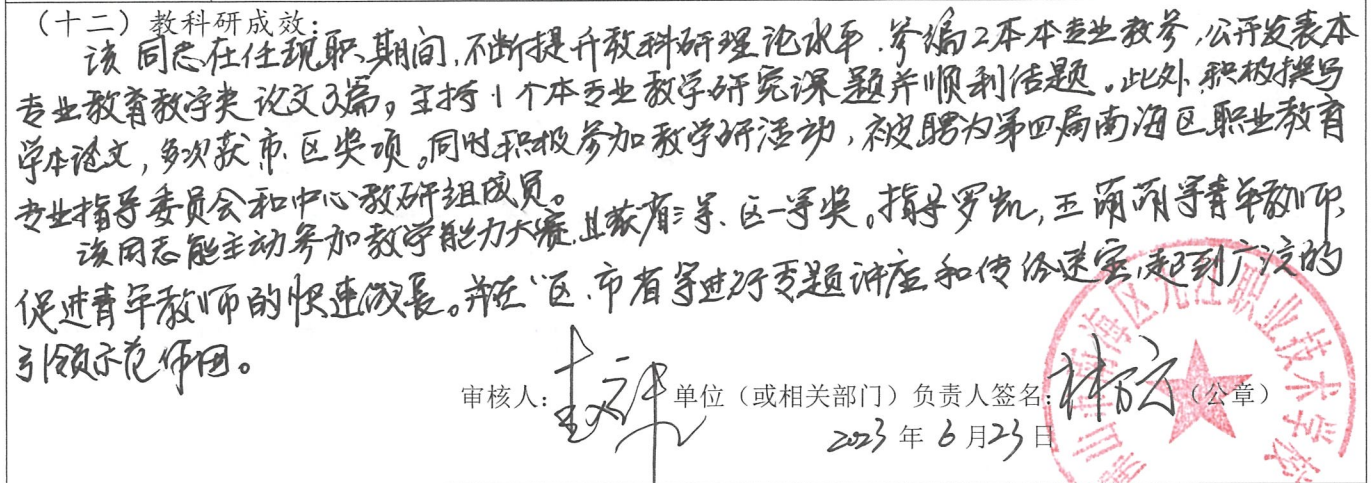 （十二）教科研成效：
该同志在任现职期间，不断提升教科研理论水平，参编2本本专业教参，公开发表本
专业教育教学类论文3篇。主持1个本专业教学研究课题并顺利结题。此外，积极撰写
学术论文，多次获市、区奖项。同时积极参加教学研活动，被聘为第四届南海区职业教育
专业指导委员会和中心教研组成员。
该同志能主动参加教学能力大赛，且获省三等、区一等奖。指导罗凯，王萌萌等青年教师，
促进青年教师的快速成长。并在区、市省等进行专题讲座和传经送宝，起到广泛的
引领示范作用。
审核人： 单位（或相关部门）负责人签名： （公章）
2023年6月23日
佛山市南海区九江职业技术学校